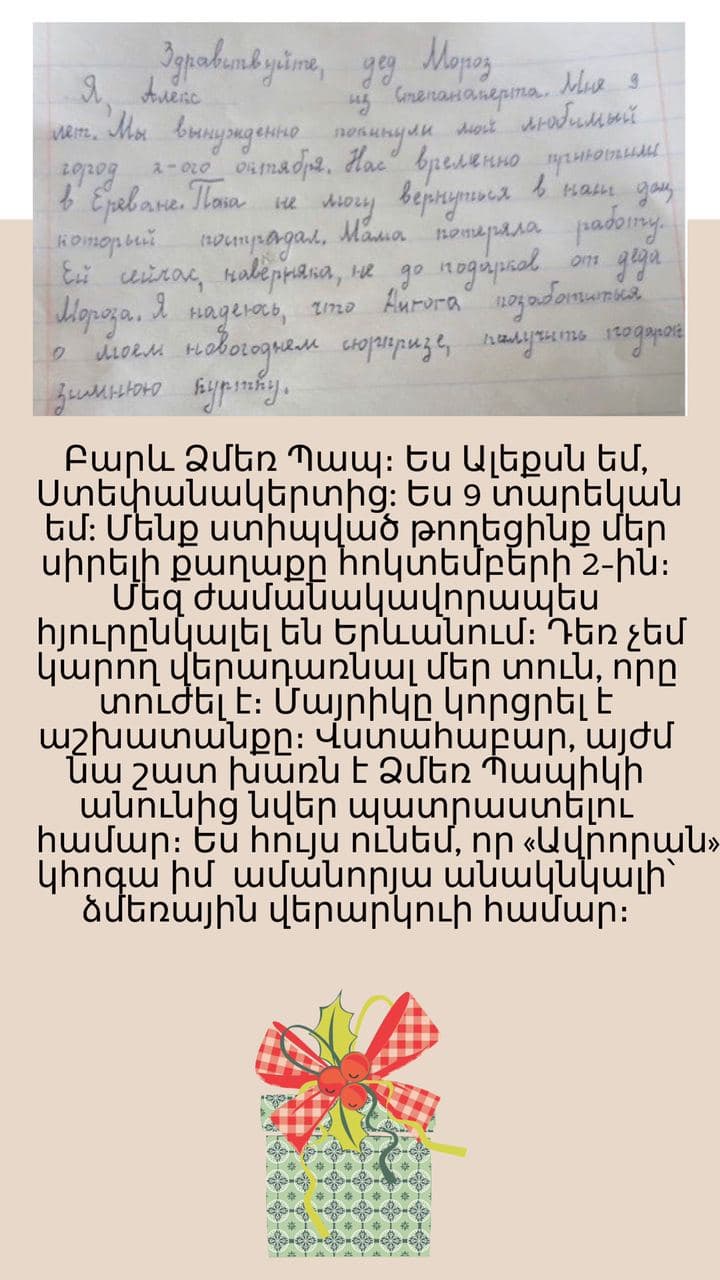 Здравствуйте, дед Мороз
Я, Алекс из Степанакерта. Мне 9
лет. Мы вынужденно покинули мой любимый
город 2-ого октября. Нас временно приютили
в Ереване. Пока не могу вернуться в наш дом,
который пострадал. Мама потеряла работу.
Ей сейчас, наверняка, не до подарков от деда
Мороза. Я надеюсь, что позаботиться
о моем новогоднем сюрпризе, получить подарок
зимнюю куртку.
Բարև Ձմեռ Պապ։ Ես Ալեքսն եմ,
Ստեփանակերտից: Ես 9 տարեկան
եմ: Մենք ստիպված թողեցինք մեր
սիրելի քաղաքը հոկտեմբերի 2-ին։
Մեզ ժամանակավորապես
հյուրընկալել են Երևանում։ Դեռ չեմ
կարող վերադառնալ մեր տուն, որը
տուժել է։ Մայրիկը կորցրել է
աշխատանքը։ Վստահաբար, այժմ
նա շատ խառն է Ձմեռ Պապիկի
անունից նվեր պատրաստելու
համար։ Ես հույս ունեմ, որ «Ավրորան»
կհոգա իմ ամանորյա անակնկալի՝
ձմեռային վերարկուի համար։